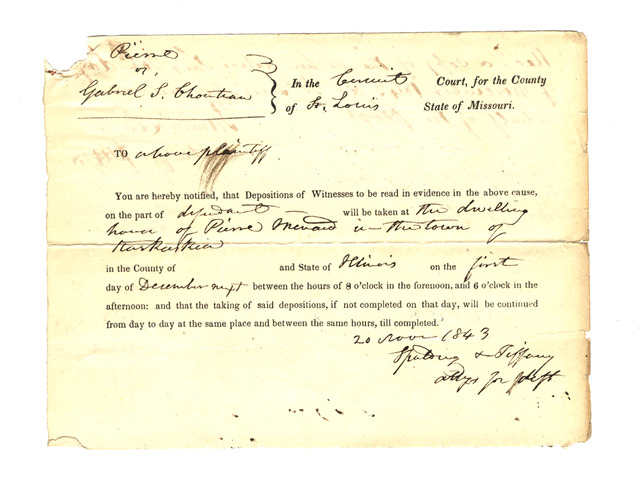 Pierre
v.
Gabriel S. Chouteau
In the Circuit Court, for the County
of St. Louis State of Missouri.
TO above plaintiff
You are hereby notified, that Depositions of Witnesses to be read in evidence in the above cause,
on the part of defendant will be taken at the dwelling
house of Pierre Menard in the town of
Kaskaskia
in the County of and State of Illinois on the first
day of December next between the hours of 8 o'clock in the forenoon, and 6 o'clock in the
afternoon: and that the taking of said depositions, if not completed on that day, will be continued
from day to day at the same place and between the same hours, till completed.
20 Novr 1843
Spalding & Tiffany
attys for deft